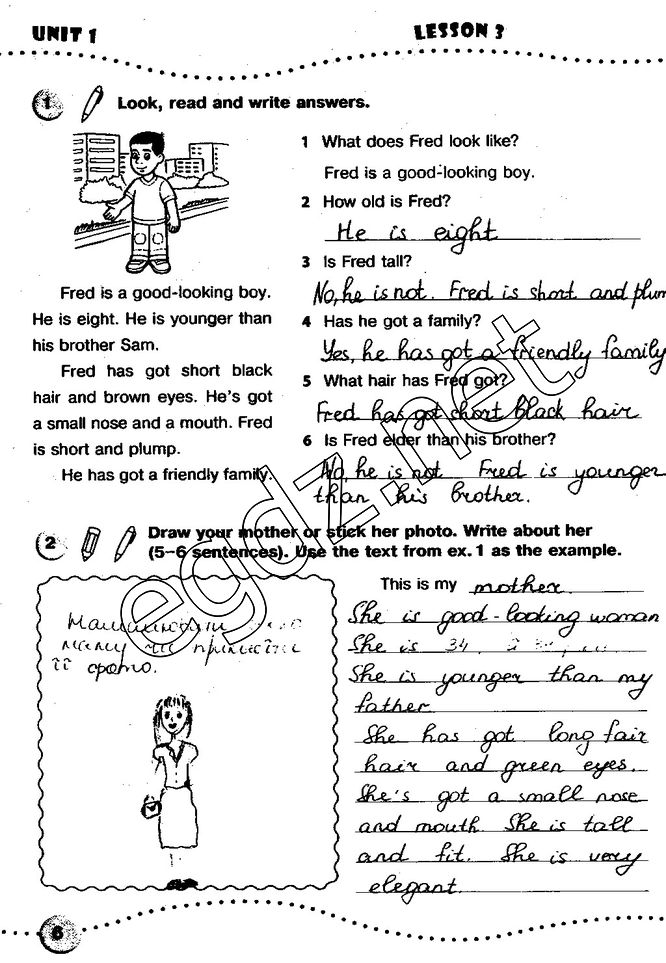 UNIT 1
LESSON 3
1
Look, read and write answers.
Fred is a good-looking boy.
He is eight. He is younger than
his brother Sam.
Fred has got short black
hair and brown eyes. He's got
a small nose and a mouth. Fred
is short and plump.
He has got a friendly family.
1 What does Fred look like?
Fred is a good-looking boy.
2 How old is Fred?
He is eight
3 Is Fred tall?
No, he is not. Fred is short and plum
4 Has he got a family?
Yes, he has got a friendly family
5 What hair has Fred got?
Fred has got short black hair
6 Is Fred elder than his brother?
No, he is not Fred is younger
than his brother.
2
Draw your mother or stick her photo. Write about her
(5–6 sentences). Use the text from ex. 1 as the example.
маму чи приклейти
її фото.
This is my mother.
She is good-looking woman
She is 34.
She is younger than my
father
She has got long fair
hair and green eyes.
She's got a small nose
and mouth. She is tall
and fit. She is very
elegant.
egdz.net
6